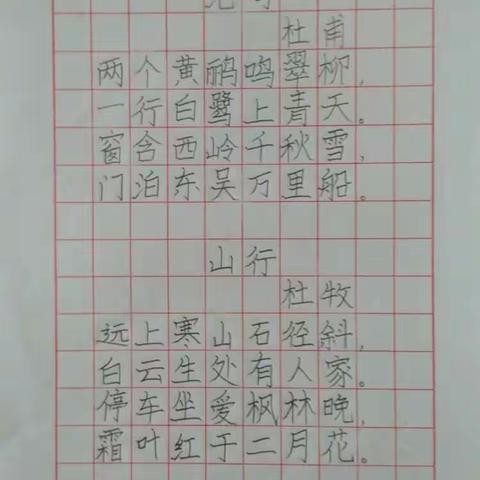 杜甫
两个黄鹂鸣翠柳，
一行白鹭上青天。
窗含西岭千秋雪，
门泊东吴万里船。
山行
杜牧
远上寒山石径斜，
白云生处有人家。
停车坐爱枫林晚，
霜叶红于二月花。